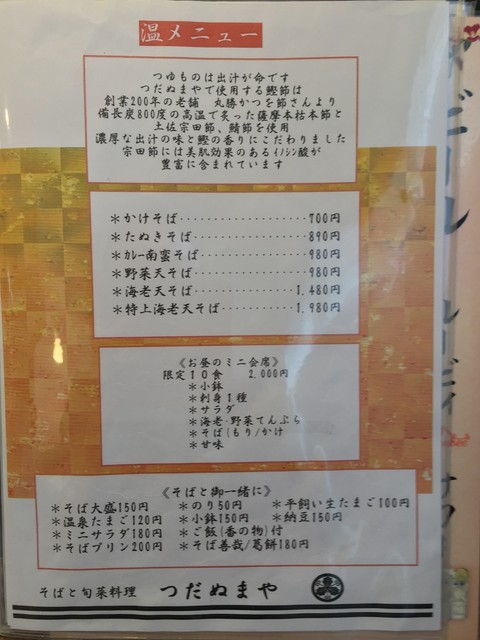 温メニュー
つゆものは出汁が命です
つだぬまやで使用する鰹節は
創業200年の老舗　丸勝かつを節さんより
備長炭800度の高温で炙った薩摩本枯本節と
土佐宗田節、鯖節を使用
濃厚な出汁の味と鰹の香りにこだわりました
宗田節には美肌効果のあるイノシン酸が
豊富に含まれています
＊かけそば・・・・・・・・・・・・・・・・・・700円
＊たぬきそば・・・・・・・・・・・・・・・・890円
＊カレー南蛮そば・・・・・・・・・・・・・・980円
＊野菜天そば・・・・・・・・・・・・・・・・980円
＊海老天そば・・・・・・・・・・・・・・1,480円
＊特上海老天そば・・・・・・・・・・1,980円
《お昼のミニ会席》
限定10食　2,000円
＊小鉢
＊刺身1種
＊サラダ
＊海老・野菜てんぷら
＊そば(もり/かけ
＊甘味
《そばと御一緒に》
＊そば大盛150円　＊のり50円　＊平飼い生たまご100円
＊温泉たまご120円　＊小鉢150円　＊納豆150円
＊ミニサラダ180円　＊ご飯(香の物)付
＊そばプリン200円　＊そば善哉/葛餅180円
そばと旬菜料理　つだぬまや